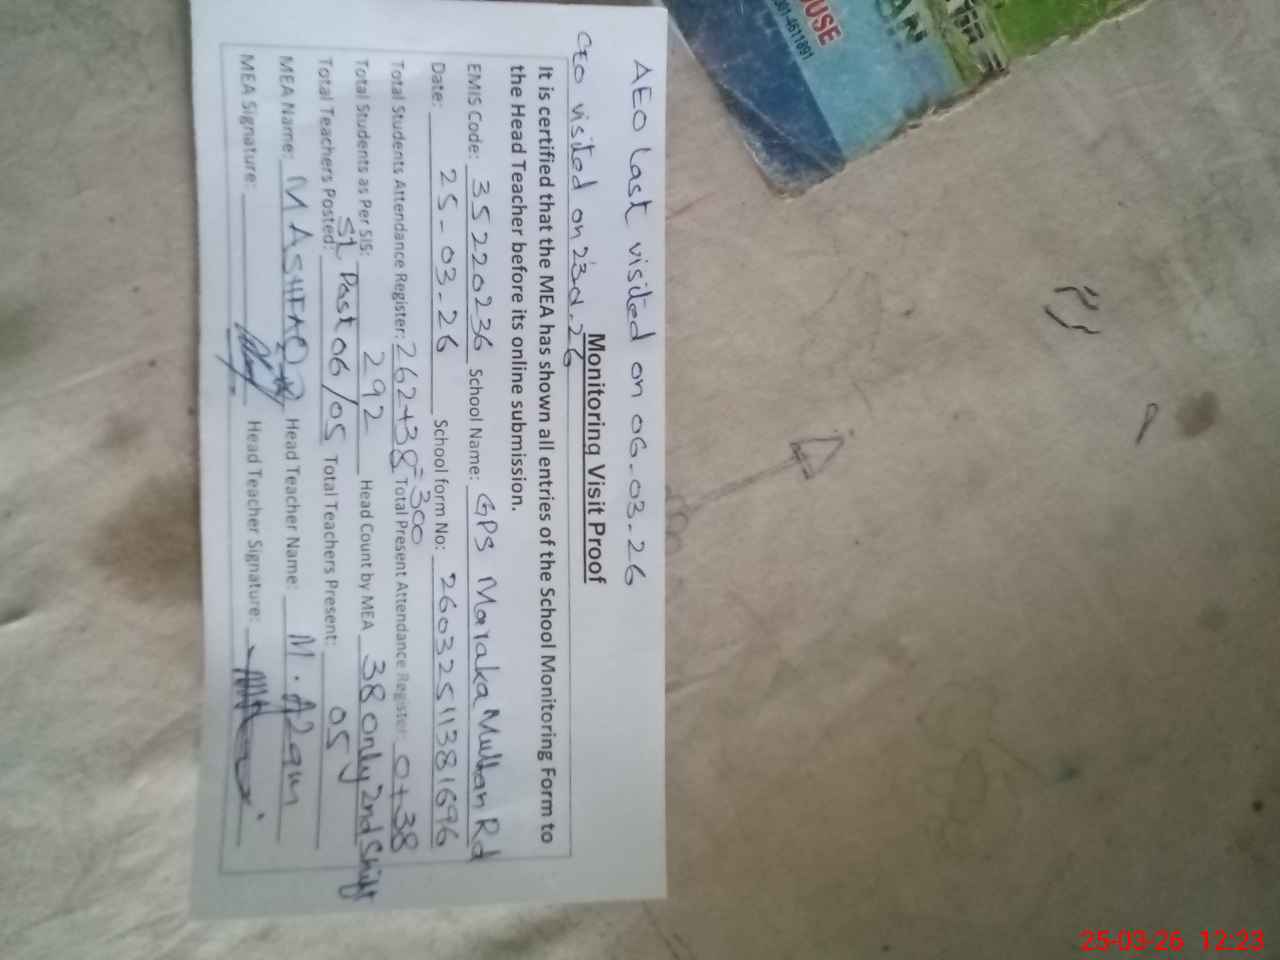 AEO Last visited on 06-03-26
Monitoring Visit Proof
ceo visited on 23-2-26
It is certified that the MEA has shown all entries of the School Monitoring Form to
the Head Teacher before its online submission.
EMIS Code: 35220236 School Name: GPS Maraka Multan Rd
Date: 25-03-26 School form No: 26032511381696
Total Students Attendance Register: 262+38=300 Total Present Attendance Register: 0+38
Total Students as Per SIS: 292 Head Count by MEA 38 only 2nd Shift
Total Teachers Posted: Past 06/05 Total Teachers Present: 05
MEA Name: M ASHFAQ Head Teacher Name: M. Azam
MEA Signature: Head Teacher Signature:
USE
AN
25-03-26 12:23